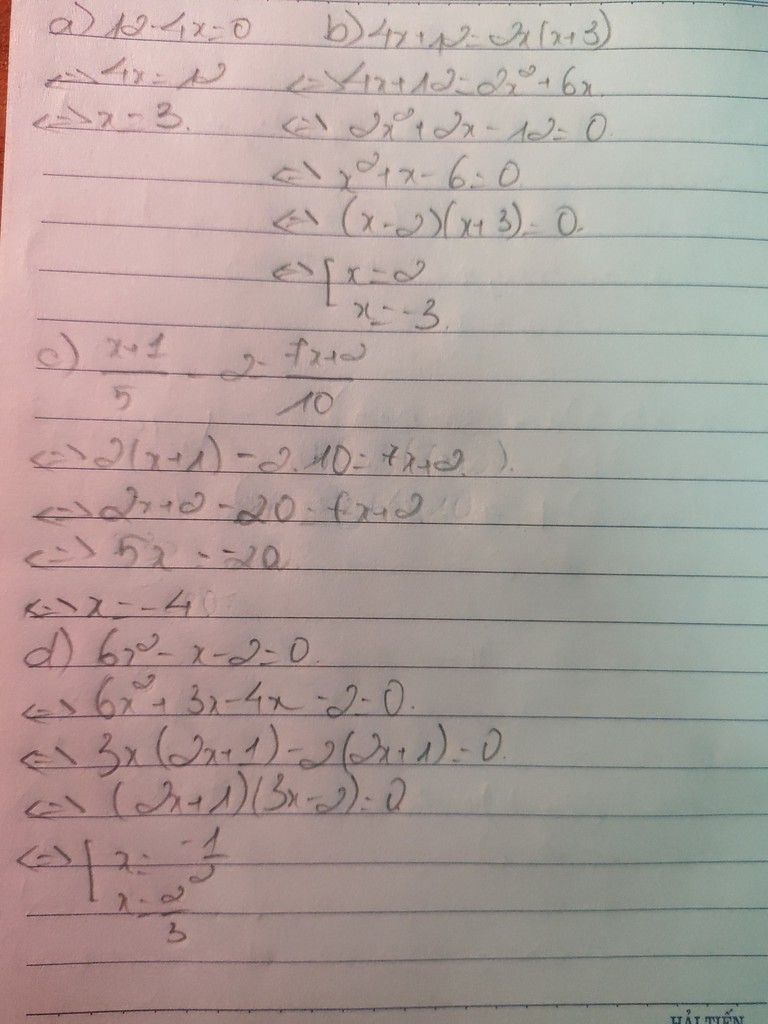 a) 12 - 4x = 0
<=> 4x = 12
<=> x = 3.
b) 4x + 12 = 2x(x+3)
<=> 4x + 12 = 2x² + 6x.
<=> 2x² + 2x - 12 = 0.
<=> x² + x - 6 = 0
<=> (x-2)(x+3) = 0.
<=> [ x = 2
x = -3.
c) \frac{x+1}{5} - 2 = \frac{7x+2}{10}
<=> 2(x+1) - 2.10 = 7x+2.
<=> 2x+2 - 20 = 7x+2
<=> 5x = -20
<=> x = -4
d) 6x² - x - 2 = 0.
<=> 6x² + 3x - 4x - 2 = 0.
<=> 3x(2x+1) - 2(2x+1) = 0.
<=> (2x+1)(3x-2) = 0
<=> [ x = \frac{-1}{2}
x = \frac{2}{3}
HẢI TIẾN